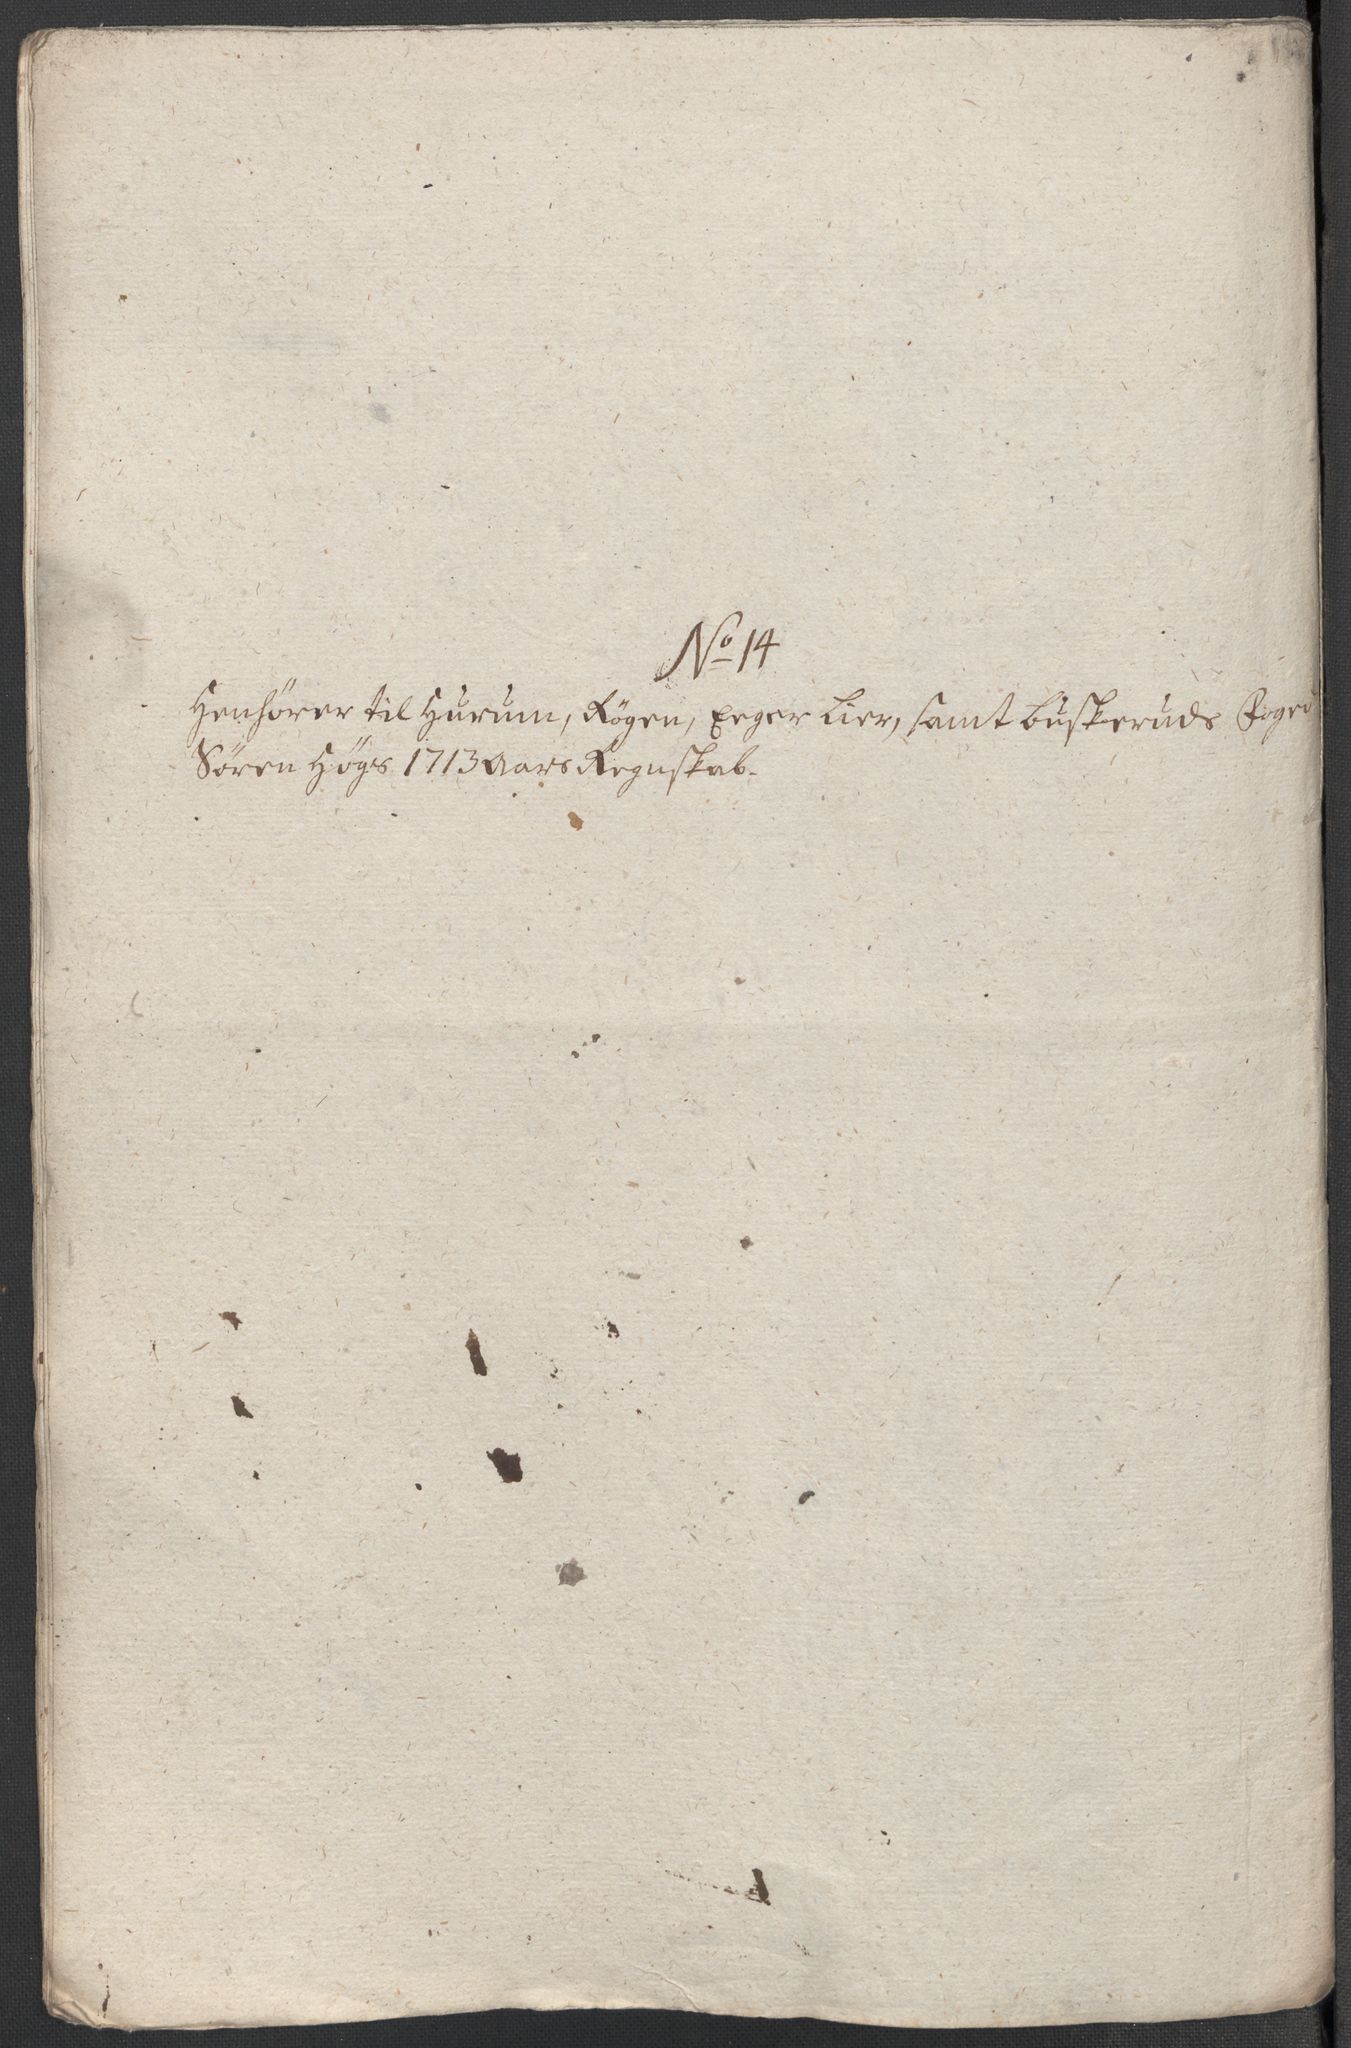 No 14
Henhörer til Hurum, Rögen, Eeger Lier, samt buskeruds Foged
Sören Høgs 1713 Aars Regnskab.